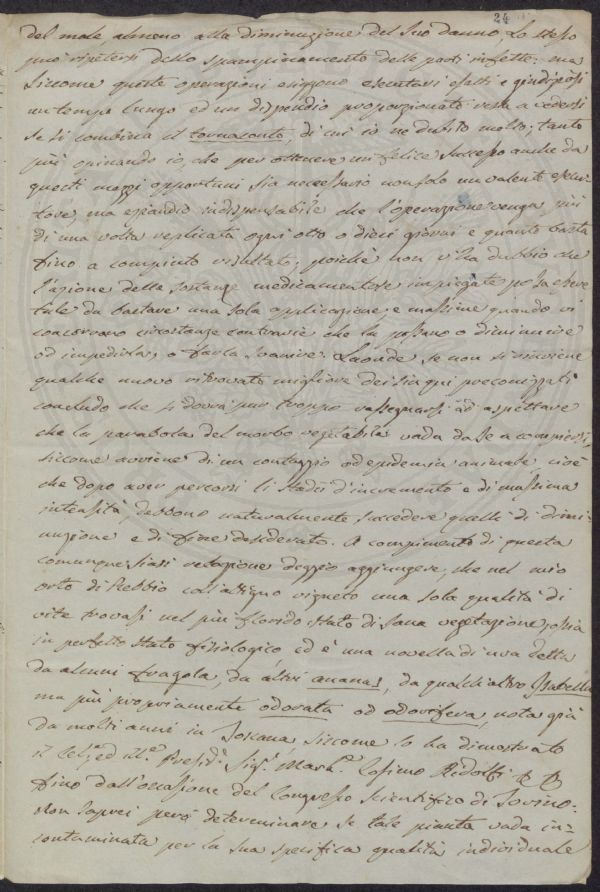 24
del male, almeno alla diminuzione del suo danno. Lo stesso
può ripetersi dello spampinamento delle parti infette: ma
siccome queste operazioni esigono esecutori esatti e giudiziosi
un tempo lungo ed un dispendio proporzionato resta a vedersi
se si combina il tornaconto, di cui io ne dubito molto; tanto
più opinando io, che per ottenere un felice successo anche da
questi mezzi opportuni sia necessario non solo un valente esecu-
tore, ma eziandio indispensabile che l'operazione venga più
di una volta replicata ogni otto o dieci giorni e quanto basta
fino a compiuto risultato; poichè non v'ha dubbio che
l'azione delle sostanze medicamentose impiegate possa essere
tale da bastare una sola applicazione; e massime quando vi
concorrano circostanze contrarie che la possano o diminuire
od impedirla, o farla svanire. Laonde se non si rinviene
qualche nuovo ritrovato migliore dei sin qui preconizzati
concludo che si dovrà pur troppo rassegnarsi ad aspettare
che la parabola del morbo vegetabile vada da se a compiersi,
siccome avviene di un contaggio od epidemia animale, cioè
che dopo aver percorsi li stadii d'incremento e di massima
intensità, debbono naturalmente succedere quelli di dimi-
nuzione e di fine desiderato. A compimento di questa
comunque siasi relazione deggio aggiungere, che nel mio
orto di Rebbio con attiguo vigneto una sola qualità di
vite trovasi nel più florido stato di sana vegetazione, ossia
in perfetto stato fisiologico ed è una novella di uva detta
da alcuni fragola, da altri ananas, da qualch'altro Isabella
ma più propriamente odorata od odorifera, nota già
da molti anni in Toscana siccome lo ha dimostrato
il Cel.e ed Ill.o Presid.e Sig.r March.e Cosimo Ridolfi
fino dall'occasione del Congresso Scientifico di Torino.
Non saprei però determinare se tale pianta vada in-
contaminata per la sua specifica qualità individuale